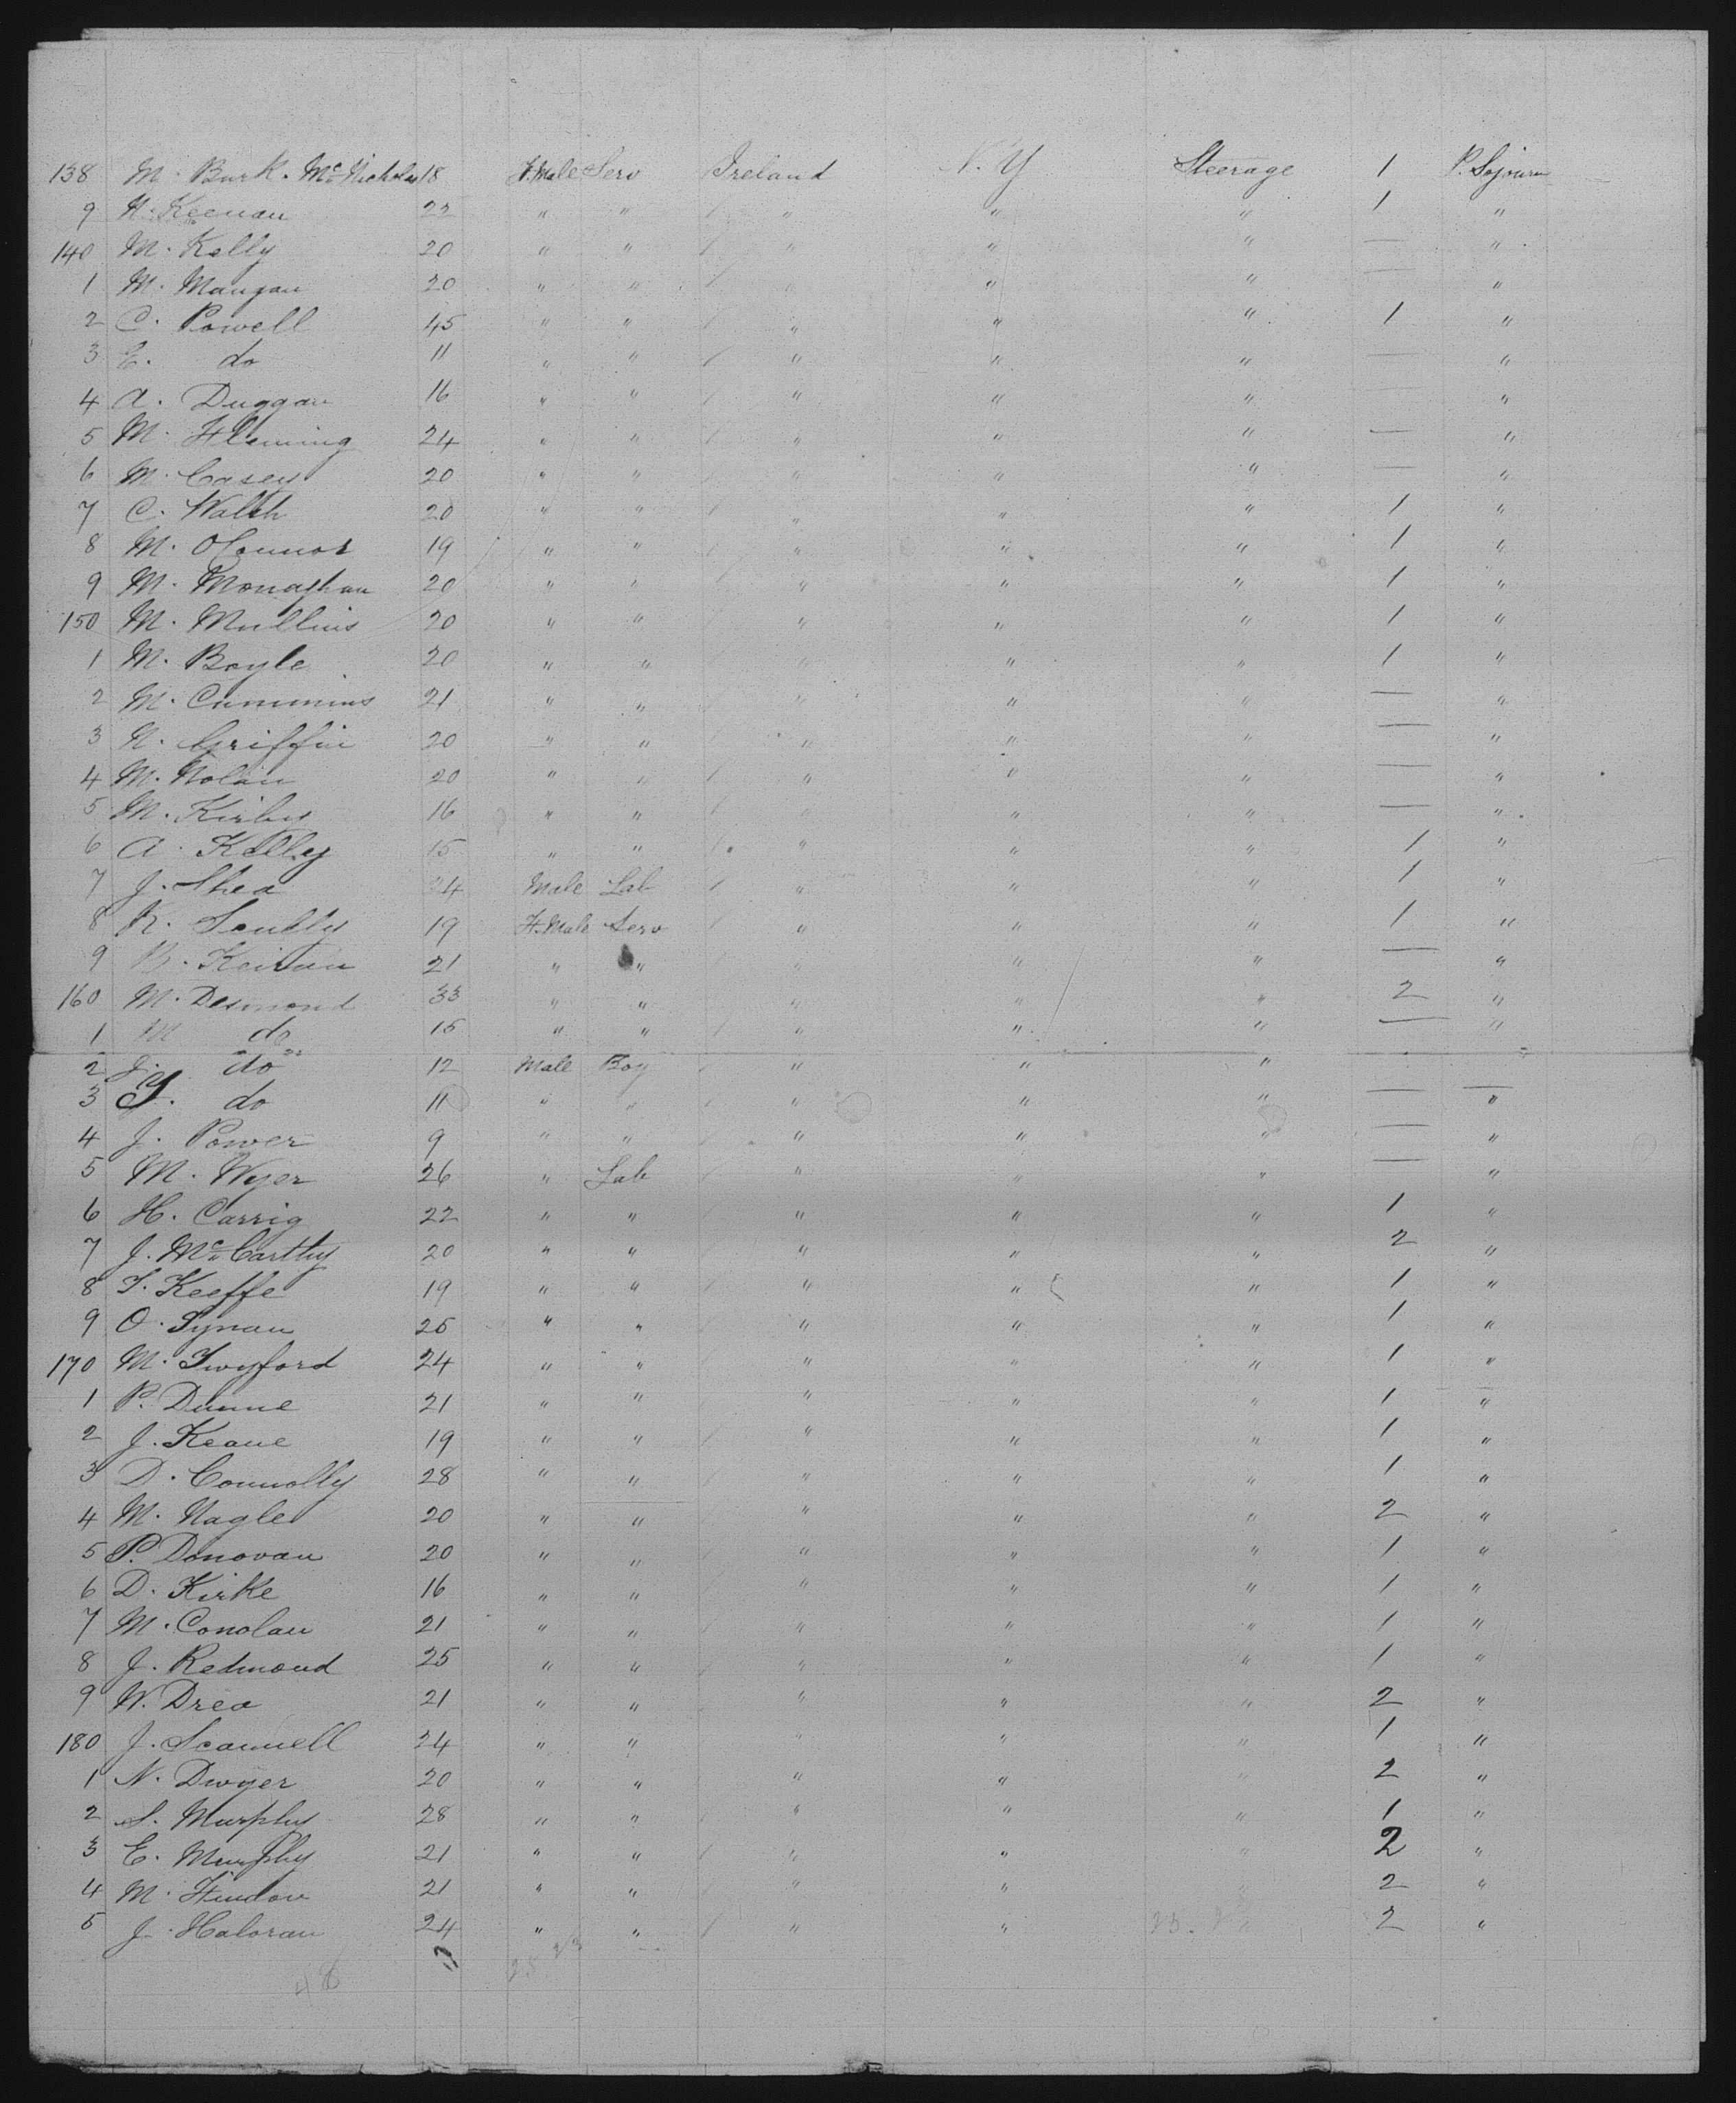 138 M. Burk. McNicholas 18 F.Male Serv Ireland N. Y Steerage 1 P. Sojourn
9 Keenan 22 " " " " " 1 "
140 M. Kelly 20 " " " " " — "
1 M. Mangan 20 " " " " " — "
2 C. Powell 45 " " " " " 1 "
3 E. do 11 " " " " " — "
4 A. Duggan 16 " " " " " — "
5 M. Fleming 24 " " " " " — "
6 M. Casey 20 " " " " " — "
7 C. Walsh 20 " " " " " 1 "
8 M. OConnor 19 " " " " " 1 "
9 M. Monaghan 20 " " " " " 1 "
150 M. Mullins 20 " " " " " 1 "
1 M. Boyle 20 " " " " " 1 "
2 M. Cummins 21 " " " " " — "
3 N. Griffin 20 " " " " " — "
4 M. Nolan 20 " " " " " — "
5 M. Kirby 16 " " " " " — "
6 A. Kelley 15 " " " " " 1 "
7 J. Shea 24 Male Lab " " " 1 "
8 K. Scully 19 F.Male Serv " " " 1 "
9 B. 21 " " " " " — "
160 M. Desmond 33 " " " " " 2 "
1 M do 15 " " " " " — "
2 J. do 12 Male Boy " " "
3 do 11 " " " " " — "
4 J. Power 9 " " " " " — "
5 M. Wyer 26 " Lab " " " — "
6 H. Carrig 22 " " " " " 1 "
7 J. McCarthy 20 " " " " " 2 "
8 T. Keeffe 19 " " " " " 1 "
9 O. Tynan 25 " " " " " 1 "
170 M. Twyford 24 " " " " " 1 "
1 P. Dunne 21 " " " " " 1 "
2 J. Keane 19 " " " " " 1 "
3 D. Connolly 28 " " " " " 1 "
4 M. Nagle 20 " " " " " 2 "
5 P. Donovan 20 " " " " " 1 "
6 D. Kirke 16 " " " " " 1 "
7 M. Conolan 21 " " " " " 1 "
8 J. Redmond 25 " " " " " 1 "
9 W. Drea 21 " " " " " 2 "
180 J. Scannell 24 " " " " " 1 "
1 N. Dwyer 20 " " " " " 2 "
2 S. Murphy 28 " " " " " 1 "
3 E. Murphy 21 " " " " " 2 "
4 M. 21 " " " " " 2 "
5 J. Haloran 24 " " " " 2 "
48